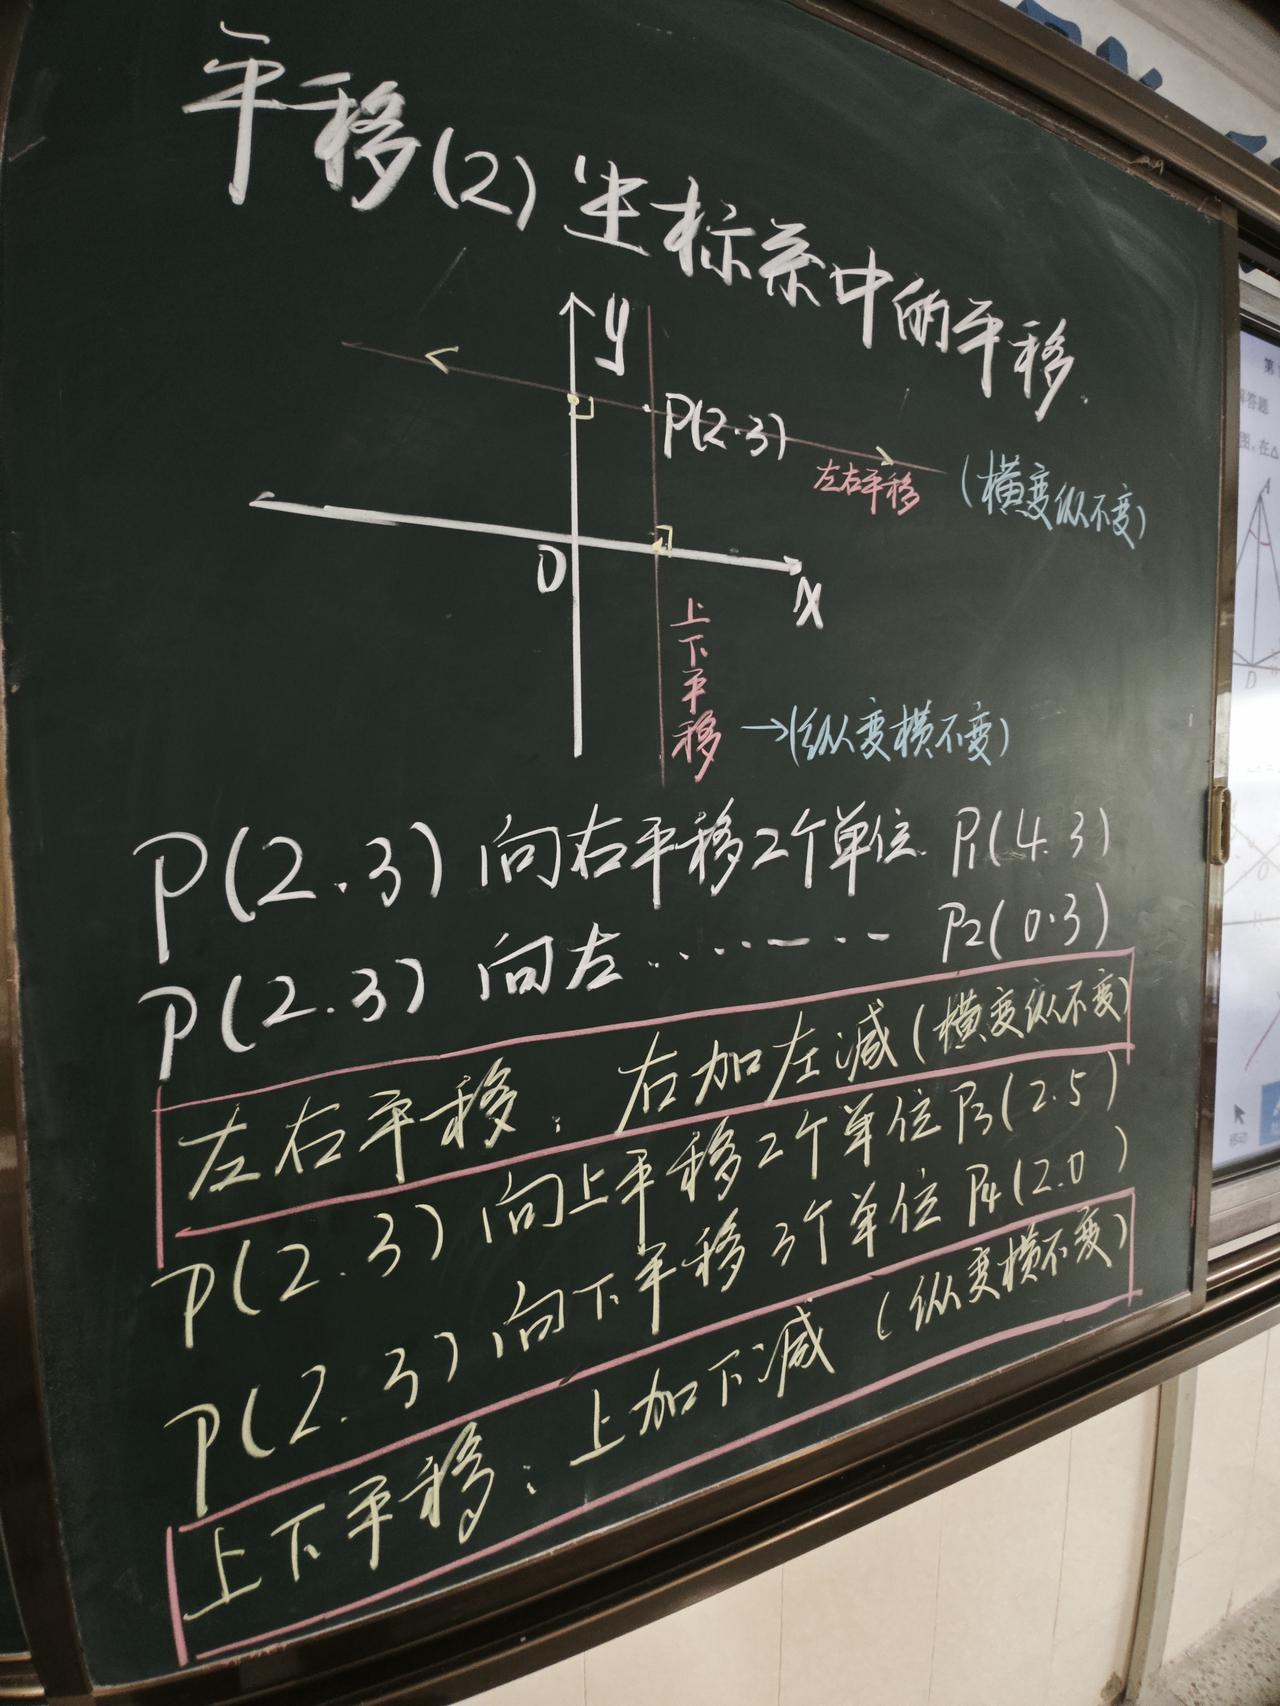 平移(2) 坐标系中的平移.
y
P(2.3)
左右平移 (横变纵不变)
O
x
上下平移 →(纵变横不变)
P(2.3) 向右平移2个单位. P1(4.3)
P(2.3) 向左……--·- P2(0.3)
左右平移：右加左减(横变纵不变)
P(2.3) 向上平移2个单位P3(2.5)
P(2.3) 向下平移3个单位P4(2.0)
上下平移：上加下减 (纵变横不变)
A
D
移动